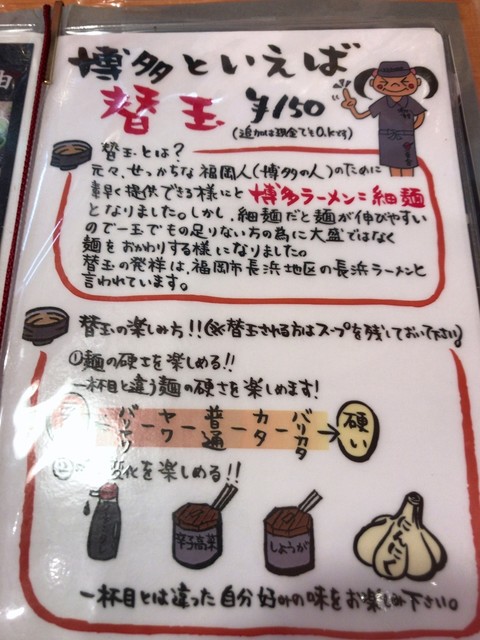 博多といえば
替玉 ¥150
(追加は現金でもO.Kです)
替玉とは?
元々、せっかちな福岡人(博多の人)のために
素早く提供できる様にと博多ラーメン=細麺
となりました。しかし、細麺だと麺が伸びやすい
ので一玉でもの足りない方の為に大盛ではなく
麺をおかわりする様になりました。
替玉の発祥は、福岡市長浜地区の長浜ラーメンと
言われています。
替玉の楽しみ方!!(※替玉される方はスープを残しておいて下さい)
①麺の硬さを楽しめる!!
一杯目と違う麺の硬さを楽しめます!
バリヤワ－ヤワ－普通－カタ－バリカタ→硬い
変化を楽しめる!!
辛子高菜 しょうが にんにく
一杯目とは違った自分好みの味をお楽しみ下さい。